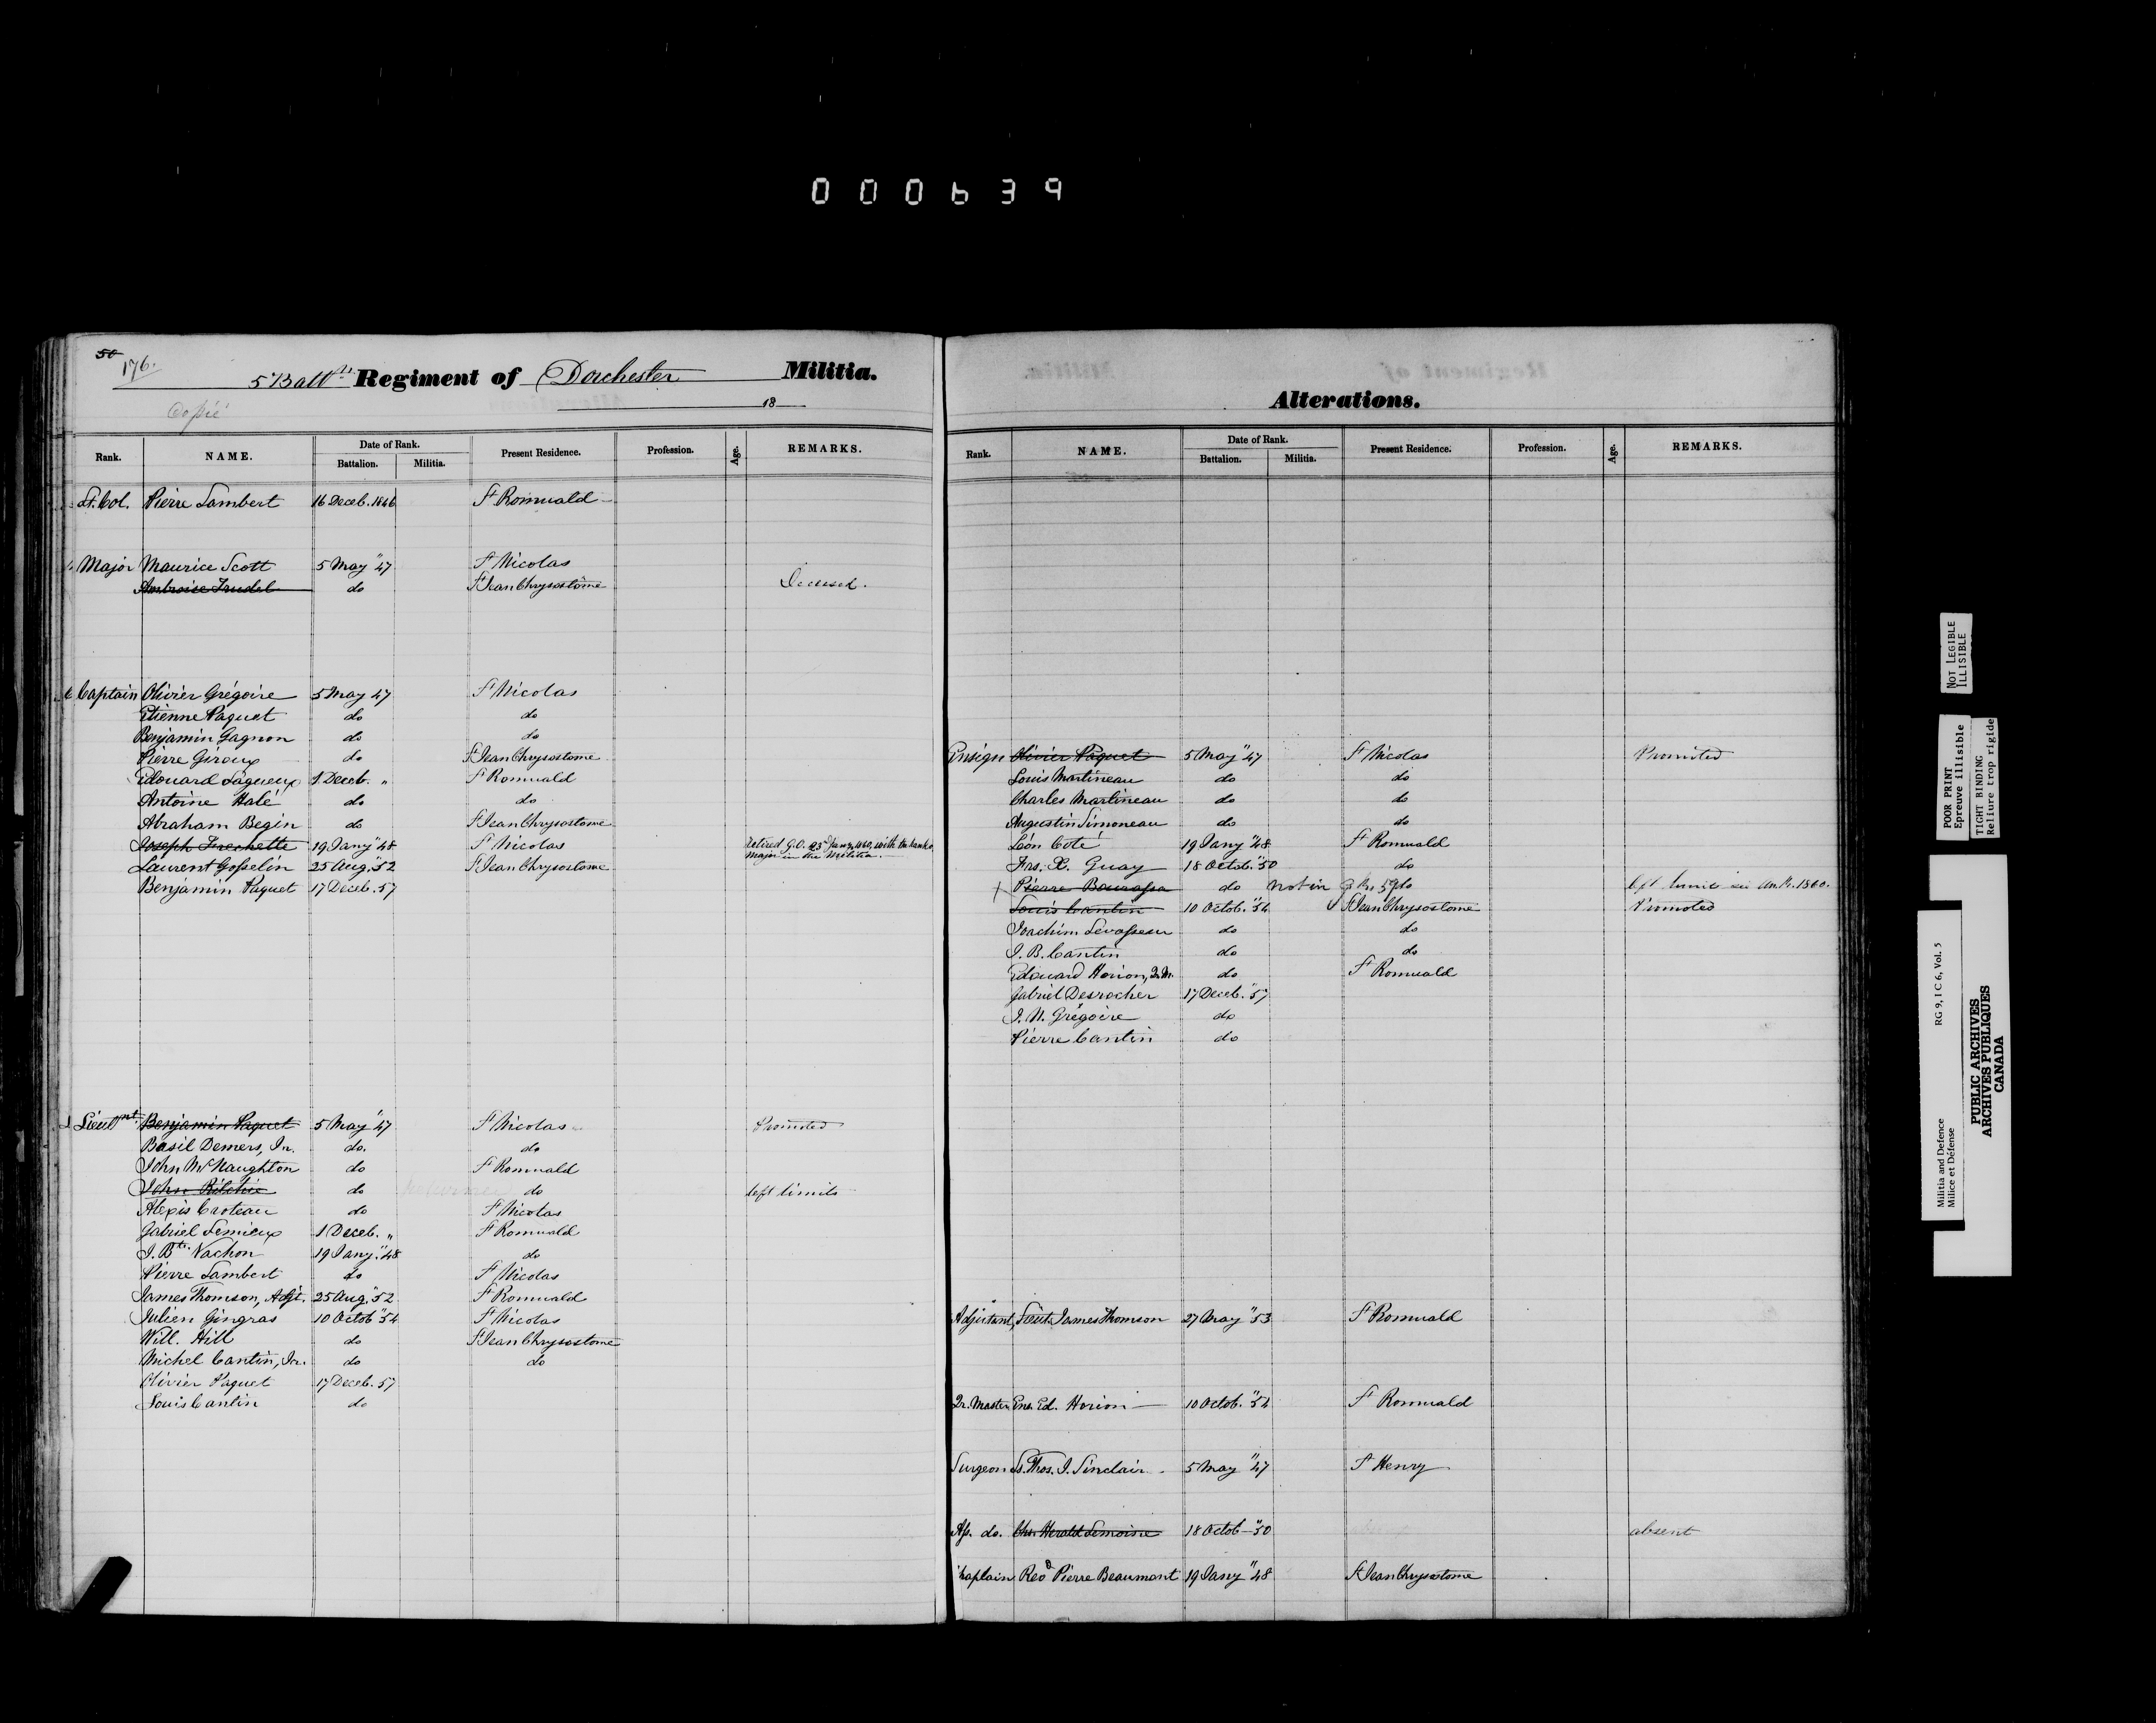 000639
50
176.
5 Batt.n Regiment of Dorchester Militia.
Copié
18
Rank. NAME. Date of Rank. Battalion. Militia. Present Residence. Profession. Age. REMARKS.
Lt. Col. Pierre Lambert 16 Deceb. 1846 St Romuald
Major Maurice Scott 5 May "47 St Nicolas
Ambroise Trudel do St Jean Chrysostôme Deceased.
Captain Olivier Grégoire 5 May 47 St Nicolas
Etienne Paquet do do
Benjamin Gagnon do do
Pierre Giroux do St Jean Chrysostome
Edouard Lagueux 1 Deceb. " St Romuald
Antoine Halé do do
Abraham Begin do St Jean Chrysostome
Joseph Frechette 19 Jany "48 St Nicolas retired G.O. 25th Jany, 1860, with the rank of
Major in the Militia.
Laurent Gosselin 25 Aug. "52 St Jean Chrysostome
Benjamin Paquet 17 Deceb. 57
Lieutnt. Benjamin Paquet 5 May "47 St Nicolas Promoted
Basil Demers, Jr. do. do
John McNaughton do St Romuald
John Ritchie do do left limits
Alexis Croteau do St Nicolas
Gabriel Lemieux 1 Deceb. " St Romuald
J. Bte. Vachon 19 Jany. "48 do
Pierre Lambert do St Nicolas
James Thomson, Adjt. 25 Aug. "52 St Romuald
Julien Gingras 10 Octob "54 St Nicolas
Will. Hill do St Jean Chrysostome
Michel Cantin, Jr. do do
Olivier Paquet 17 Deceb. 57
Louis Cantin do
Alterations.
Rank. NAME. Date of Rank. Battalion. Militia. Present Residence. Profession. Age. REMARKS.
Ensign Olivier Paquet 5 May "47 St Nicolas Promoted
Louis Martineau do do
Charles Martineau do do
Augustin Simoneau do do
Léon Coté 19 Jany "48 St Romuald
Frs. X. Guay 18 Octob. "50 do
Pierre Bourassa do not in do left limits 1860.
Louis Cantin 10 Octob. "54 St Jean Chrysostome Promoted
Joachim Levasseur do do
J. B. Cantin do do
Edouard Horion, Q.M. do St Romuald
Gabriel Desrocher 17 Deceb. "57
J. N. Grégoire do
Pierre Cantin do
Adjutant, Lieut. James Thomson 27 May "53 St Romuald
Qr. Master Ens. Ed. Horion 10 Octob. "54 St Romuald
Surgeon Ls. Thos. J. Sinclair 5 May "47 St Henry
As. do. Chs. Herald Lemoine 18 Octob "50 absent
Chaplain Revd Pierre Beaumont 19 Jany "48 St Jean Chrysostome
NOT LEGIBLE
ILLISIBLE
POOR PRINT
Epreuve illisible
TIGHT BINDING
Reliure trop rigide
Militia and Defence
Milice et Défense
RG 9, I C 6, Vol. 5
PUBLIC ARCHIVES
ARCHIVES PUBLIQUES
CANADA